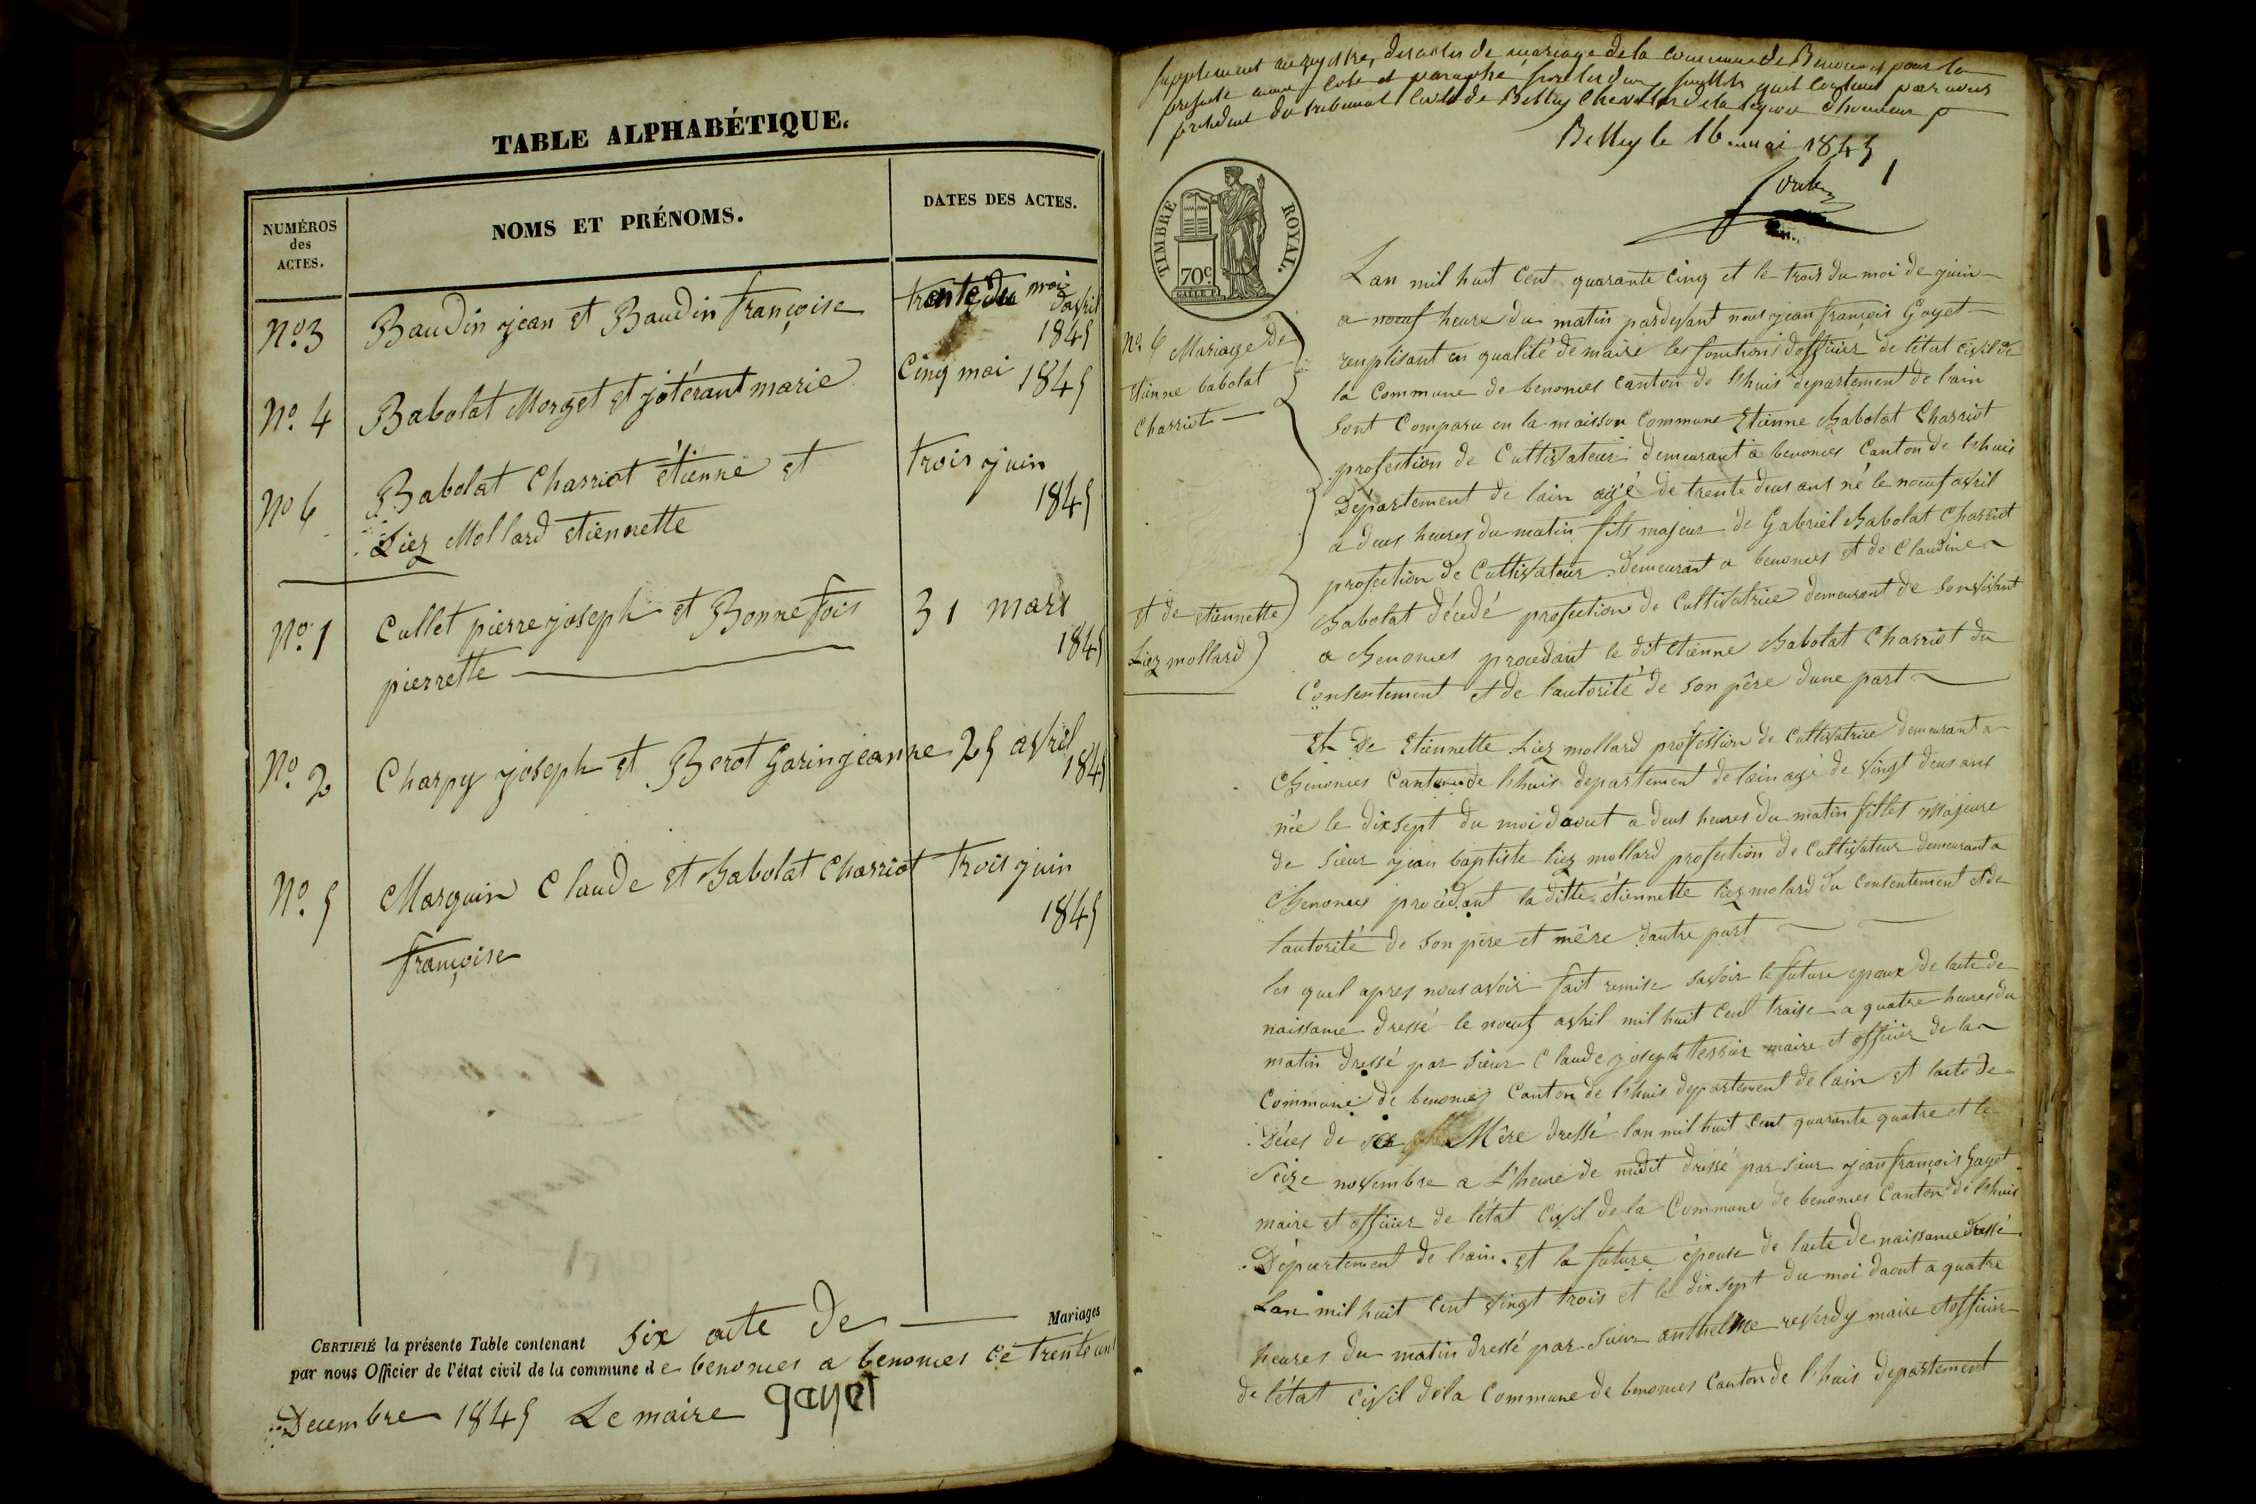 TABLE ALPHABÉTIQUE.
NUMÉROS
des
ACTES.
NOMS ET PRÉNOMS.
DATES DES ACTES.
No. 3 Baudin jean et Baudin françoise trente du mois
davril
1845
No. 4 Babolat Morget et joterant marie Cinq mai 1845
No 6 Babolat Charriot étienne et trois juin
1845
Liez Mollard etiennette
No. 1 Cullet pierre joseph et Bonne fois 31 mars
1845
pierrette
No 2 Charpy joseph et Berot Garin jeanne 25 avril
1845
No. 5 Marguin Claude et Babolat Charriot trois juin
1845
françoise
CERTIFIÉ la présente Table contenant six acte de Mariages
par nous Officier de l'état civil de la commune de benonces a benonces ce trente un
Decembre 1845 Le maire gayet
Supplement au registre, des actes de mariage de la commune de Benonces pour la
presente anné coté et paraphé feuillets quil contient par nous
président du tribunal Civil de Belley Chevallier de la légion dhonneur
Belley le 16 mai 1845
1
TIMBRE ROYAL.
70c.
No. 6 Mariage de
etienne babolat
Charriot
et de etiennette
Liez mollard
Lan mil huit Cent quarante Cinq et le trois du moi de juin
a noeuf heure du matin pardevant nous jean françois Gayet
remplisant en qualité de maire les fonctions dofficier de létat civil de
la Commune de benonces canton de lhuis departement de lain
sont Comparu en la maison Commune Etienne Babolat Charriot
profestion de Cultivateur demeurant a benonces Canton de lhuis
Département de lain agé de trente deus ans né le noeuf avril
a deus heures du matin fils majeur de Gabriel Babolat Charriot
profection de Cultivateur demeurant a benonces et de Claudine
Babolat décédé profection de Cultivatrice demeurant de son vivant
a Benonces procedant le dit etienne Babolat Charriot du
Consentement et de lautorité de son père dune part
Et de Etiennette Liez mollard profession de Cultivatrice demeurant a
Benonces Canton de lhuis departement de lain agé de vingt deus ans
née le dixsept du moi daout a deus heures du matin filles Majeure
de sieur jean baptiste liez mollard profection de Cultivateur demeurant a
Benonces procédant la ditte étiennette liez molard du Consentement et de
lautorité de son père et mère dautre part
les quel apres nous avoir fait remise savoir le future epoux de lacte de
naissance dressé le noeuf avril mil huit Cent traise a quatre heures du
matin dressé par sieur Claude joseph tessier maire et officier de la
Commune de benonces Canton de lhuis departement de lain et lacte de
Déces de sa Mère dressé lan mil huit Cent quarante quatre et le
seize novembre a L'heure de midit dressé par sieur jean françois Gayet
maire et officier de létat Civil de la Commune de benonces Canton de lhuis
Département de lain. et la future épouse de lacte de naissance dressé
Lan mil huit Cent vingt trois et le dix sept du moi daout a quatre
heures du matin dressé par sieur anthelme reverdy maire et officier
de létat Civil de la Commune de benonces Canton de l'huis departement